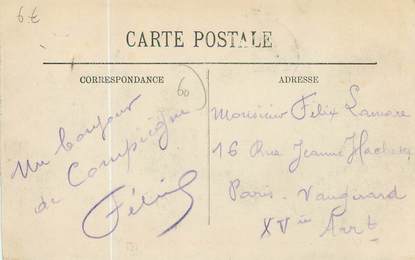 6.€
CARTE POSTALE
CORRESPONDANCE
60
Un bonjour
de Compiègne
ADRESSE
Monsieur Félix Lamare
16 Rue Jeanne Hachette
Paris - Vaugirard
XVie Arrt